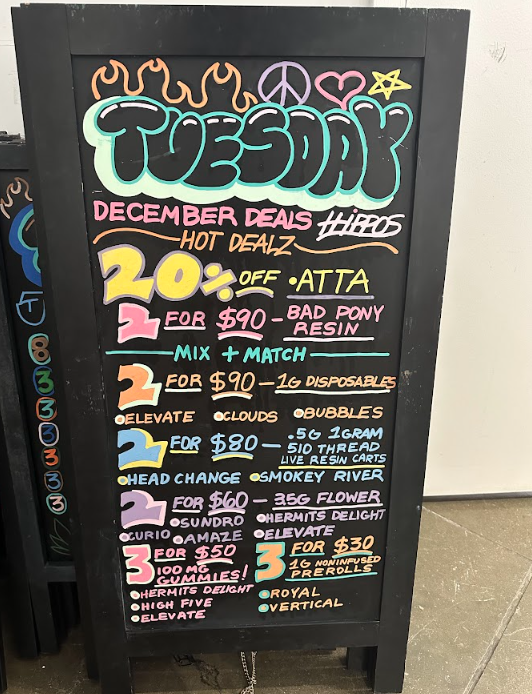 TUESDAY
DECEMBER DEALS #HIPPOS
HOT DEALZ
20% OFF •ATTA
2 FOR $90 - BAD PONY
RESIN
MIX + MATCH
2 FOR $90 - 1G DISPOSABLES
•ELEVATE •CLOUDS •BUBBLES
2 FOR $80 - .5G 1GRAM
510 THREAD
LIVE RESIN CARTS
•HEAD CHANGE •SMOKEY RIVER
2 FOR $60 - 3.5G FLOWER
•SUNDRO •HERMITS DELIGHT
•CURIO •AMAZE •ELEVATE
3 FOR $50
100 MG
GUMMIES!
•HERMITS DELIGHT
•HIGH FIVE
•ELEVATE
3 FOR $30
1G NONINFUSED
PREROLLS
•ROYAL
•VERTICAL